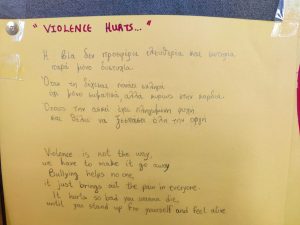 "VIOLENCE HURTS..."
Η βία δεν προσφέρει ελευθερία και ευτυχία
παρά μόνο δυστυχία.
Όταν τη δέχεσαι πονάς
όχι μόνο σωματικά, αλλά κυρίως στην καρδιά.
Όποιος την ασκεί έχει πληγωμένη ψυχή
και θέλει να ξεσπάσει όλη την οργή
Violence is not the way,
we have to make it go away
Bullying helps no one,
it just brings out the pain in everyone.
It hurts so bad you wanna die,
until you stand up for yourself and feel alive